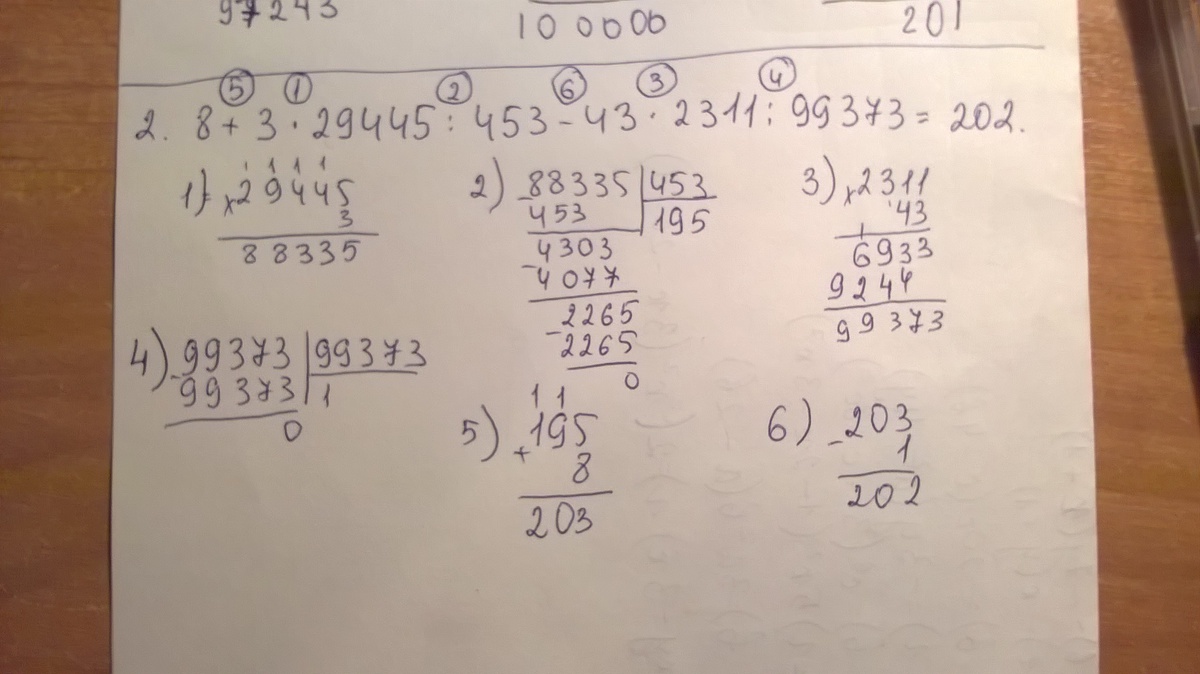 97243 100000 201
⑤ ① ② ⑥ ③ ④
2. 8 + 3 · 29445 : 453 - 43 · 2311 : 99373 = 202.
1) 2) 3)
1 1 1 1
× 29445
3
88335
- 88335 | 453
453 | 195
4303
- 4077
2265
- 2265
0
× 2311
43
1
6933
9244
99373
4) 5) 6)
- 99373 | 99373
99373 | 1
0
1 1
195
+ 8
203
- 203
1
202